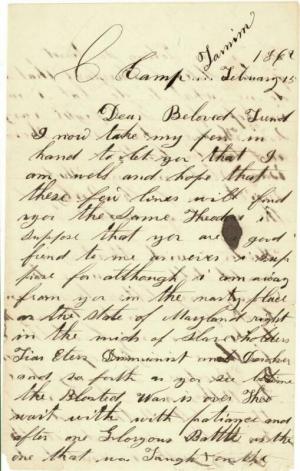 1862
C. Camp in February 15
Dear Beloved Friend
I now take my pen in
hand to let yor that I
am well and hope that
these few lines will find
yor the Same Theodor i
suppose that yor are a good
friend to me as ever i sup
pose for although i am away
from yor in the nasty place
as the State of Maryland right
in the mids of Slave holders
and so forth as yor see
the Bloated War is over Theo
wait with with patiance and
after one Gloryous Battle as the
one that was Faught on the